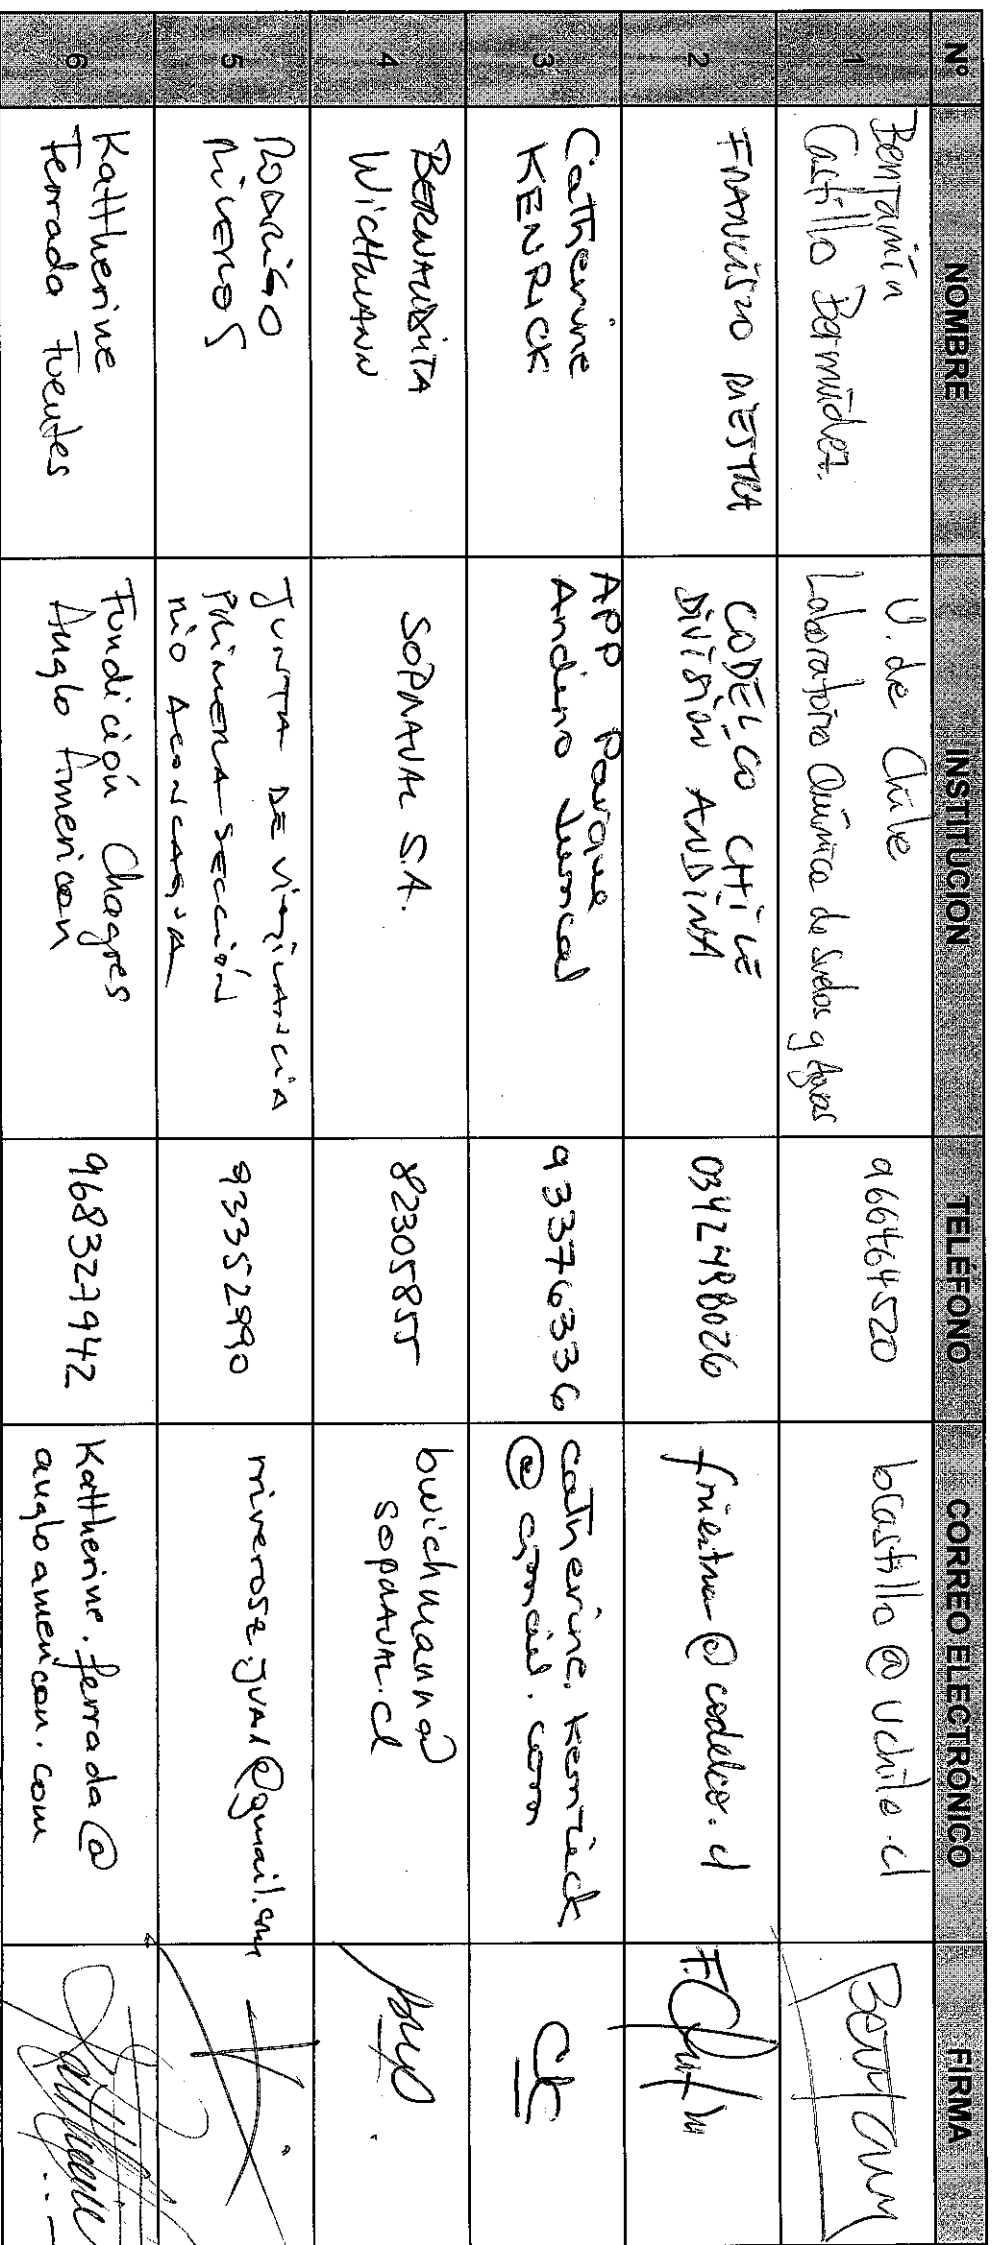 Nº NOMBRE INSTITUCION TELÉFONO CORREO ELECTRÓNICO FIRMA
1
Benjamín
Castillo Bermúdez.
U. de Chile
Laboratorio Química de Suelos y Aguas
966464520
bcastillo@uchile.cl
Benjamin
2
FRANCISCO RIESTRA
CODELCO CHILE
DIVISIÓN ANDINA
0342498026
friestra@codelco.cl
3
Catherine
KENRICK
APP Parque
Andino Juncal
93376336
catherine.kenrick
@gmail.com
CK
4
BERNARDITA
WICHMANN
SOPRAVAL S.A.
82305855
bwichmann@
sopraval.cl
5
RODRIGO
RIVEROS
JUNTA DE VIGILANCIA
PRIMERA SECCIÓN
RIO ACONCAGUA
93352990
riverosr.jva1@gmail.com
6
Kattherine
Ferrada Fuentes
Fundición Chagres
Anglo American
968327942
Kattherine.ferrada@
angloamerican.com